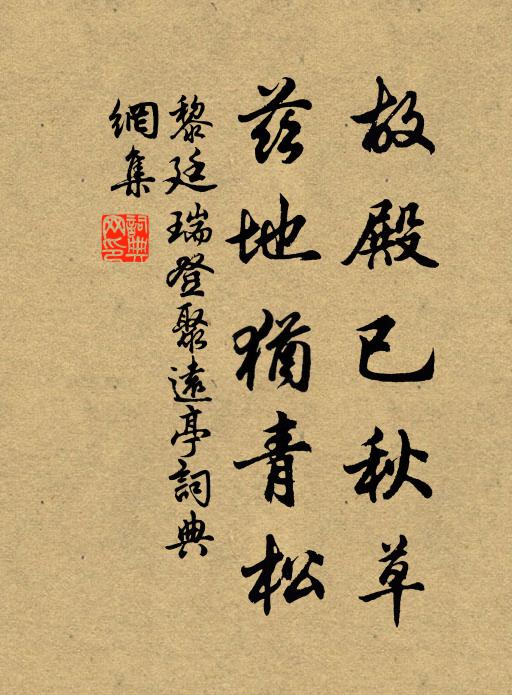 故殿已秋草
茲地猶青松
黎廷瑞登聚遠亭詞典
網集
詞典
网印